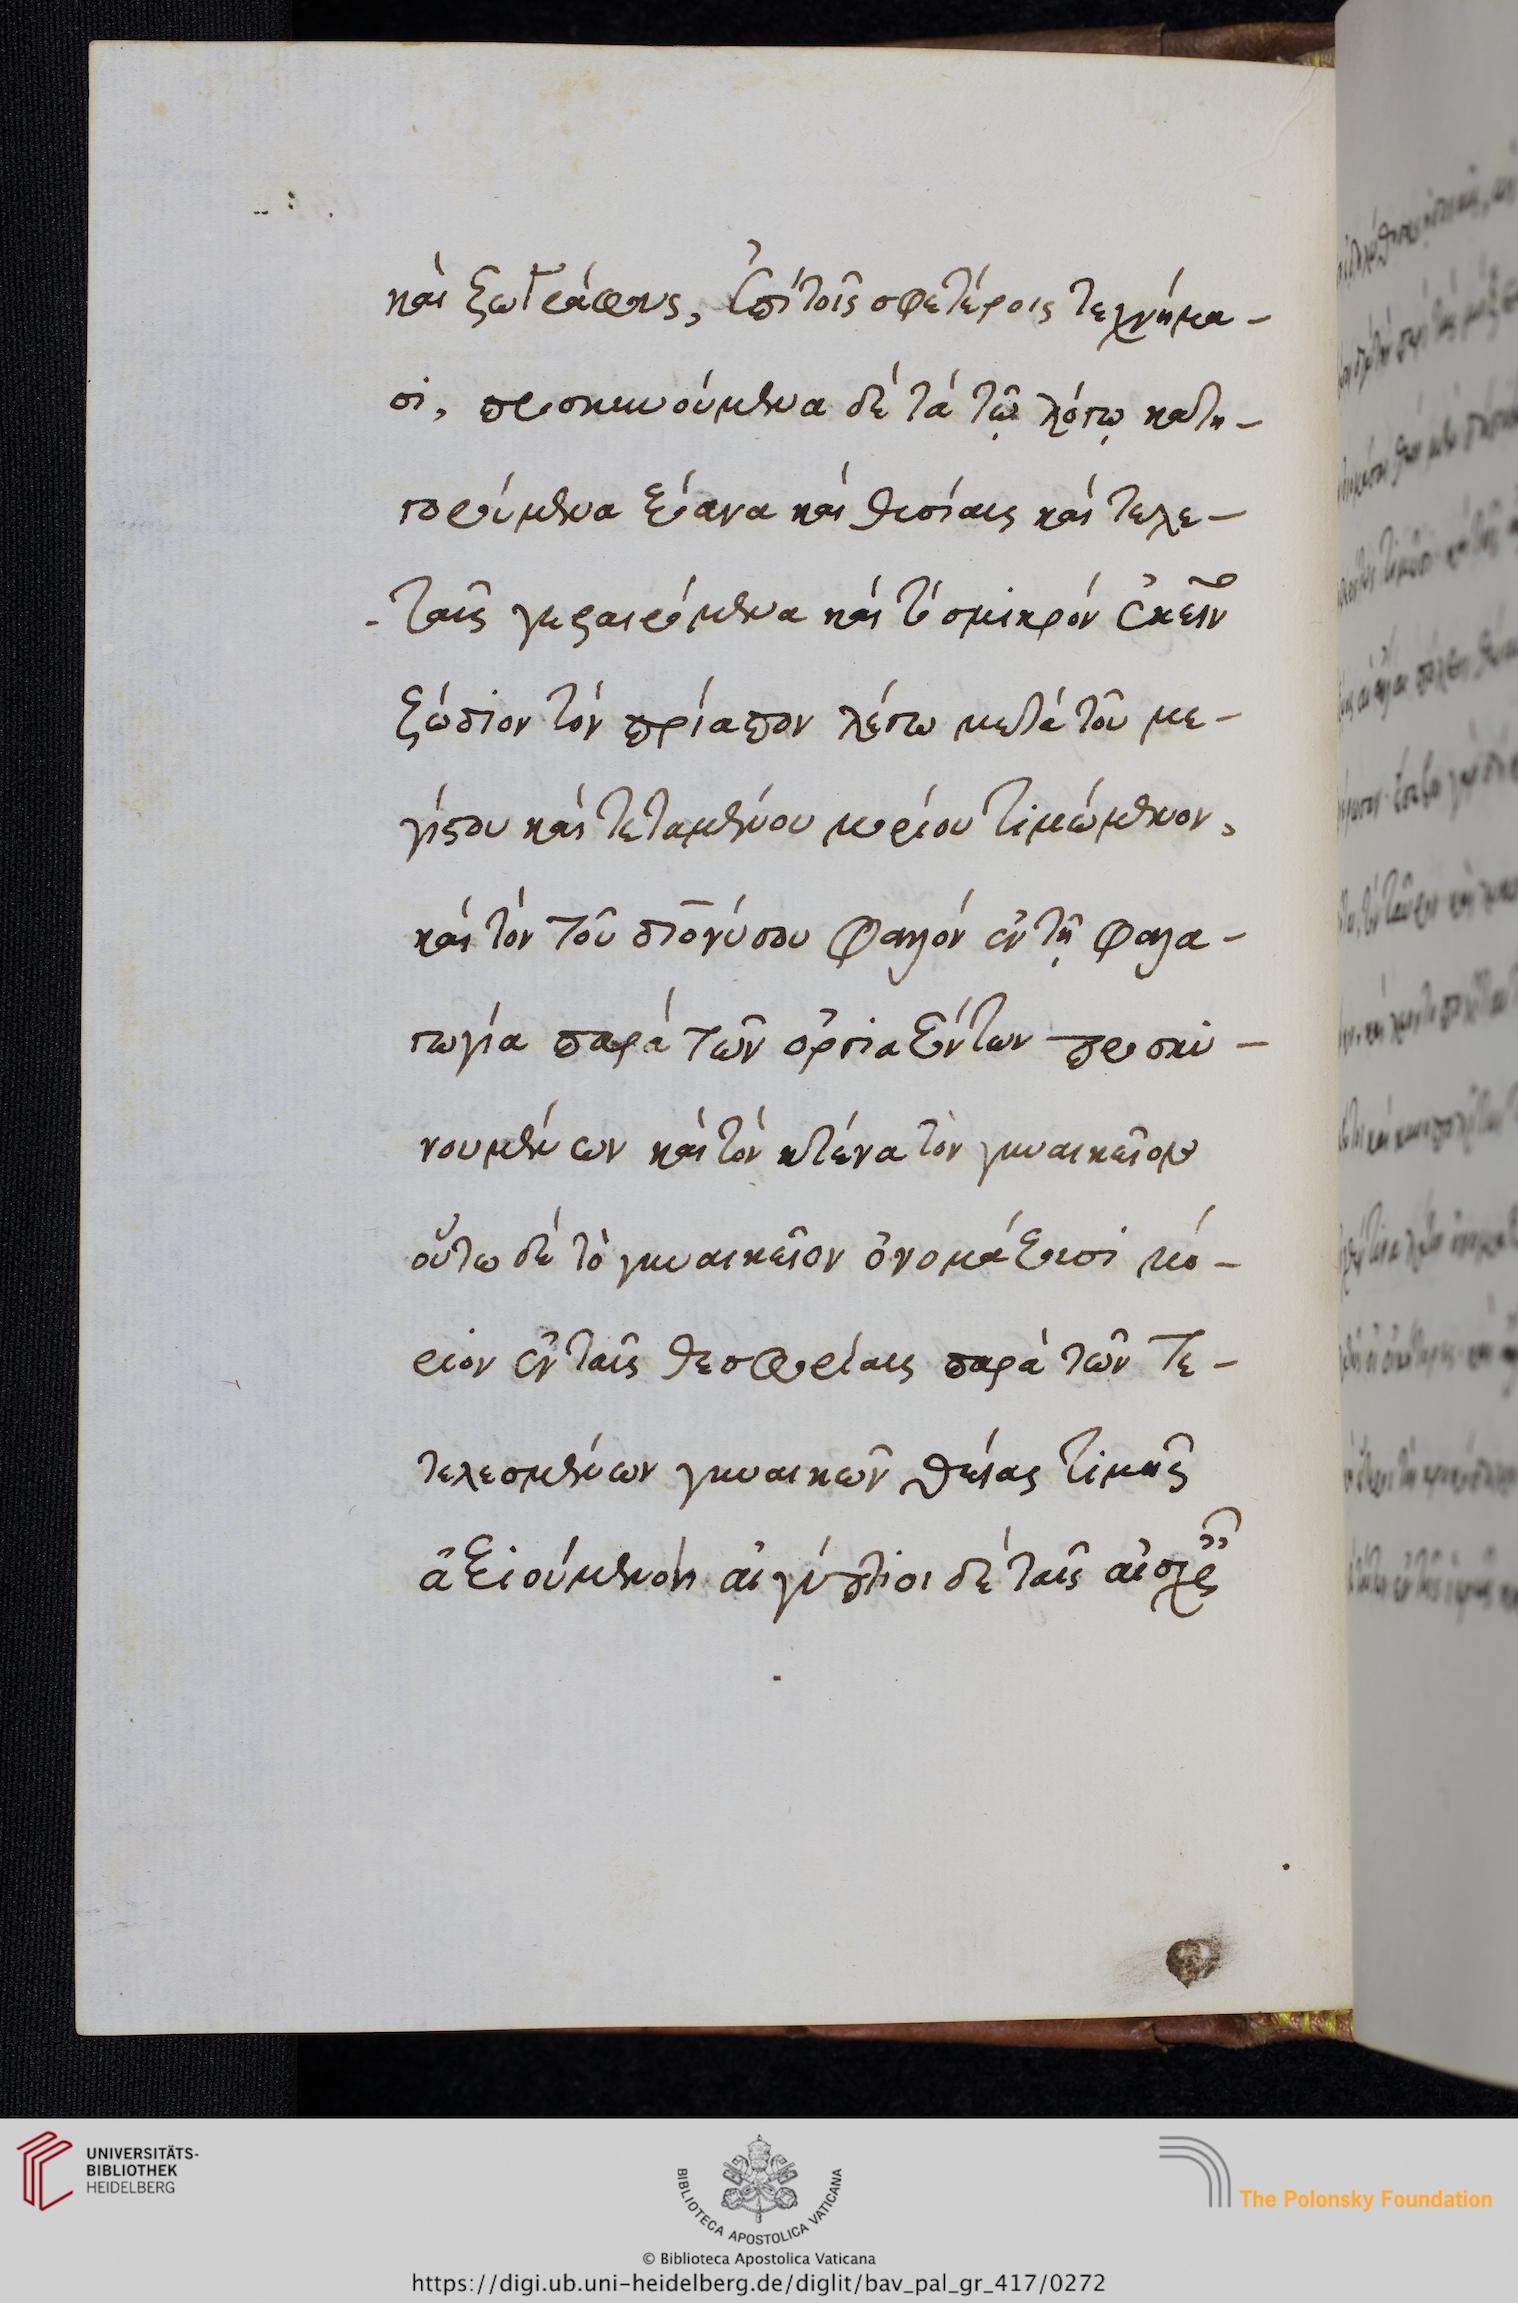 καὶ ζωγράφους, ἐπὶ τοῖς σφετέροις τεχνήμα-
σι, προσκυνούμενα δὲ τὰ τῷ λόπῳ κατη-
πορούμενα ξόανα καὶ θυσίαις καὶ τελε-
ταῖς γεραιρόμενα καὶ τὸ σμικρὸν ἐκεῖνο
ζώδιον τὸν πρίαπον λέγω μετὰ τοῦ με-
γίστου καὶ τεταμένου μορίου τιμώμενον,
καὶ τὸν τοῦ διονύσου φαλὸν ἐν τῇ φαλα-
γωγία παρὰ τῶν ὀργιαζόντων προσκυ-
νουμένων καὶ τὸν κτένα τὸν γυναικεῖον
οὕτω δὲ τὸ γυναικεῖον ὀνομάζουσι μό-
ριον ἐν ταῖς θεσφορίαις παρὰ τῶν τε-
τελεσμένων γυναικῶν θείας τιμῆς
ἀξιούμενον αἰγύπτιοι δὲ ταῖς αἰσχρ
UNIVERSITÄTS-
BIBLIOTHEK
HEIDELBERG
BIBLIOTECA APOSTOLICA VATICANA
The Polonsky Foundation
© Biblioteca Apostolica Vaticana
https://digi.ub.uni-heidelberg.de/diglit/bav_pal_gr_417/0272